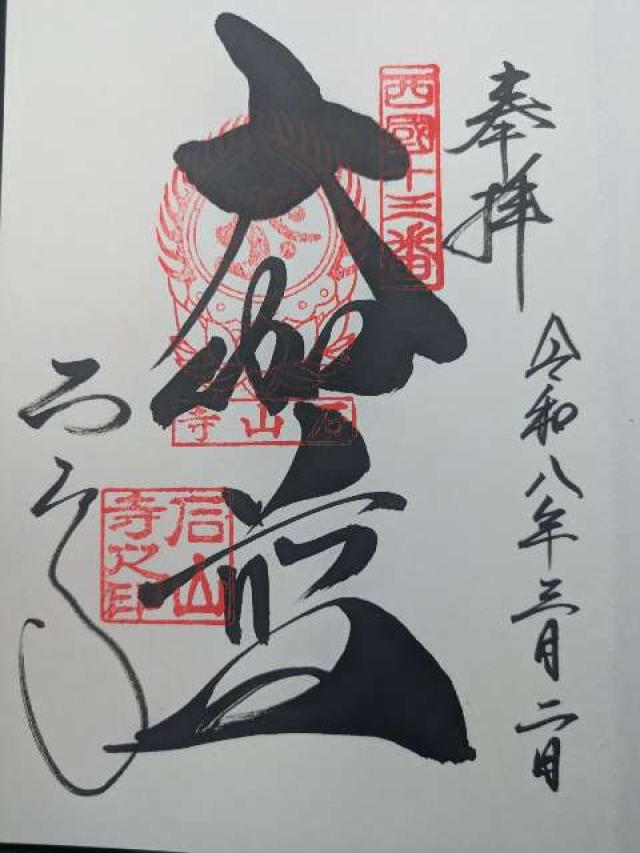 奉拝
令和八年三月二日
西國十三番
大伽藍
石山寺
石山寺
石山寺之印